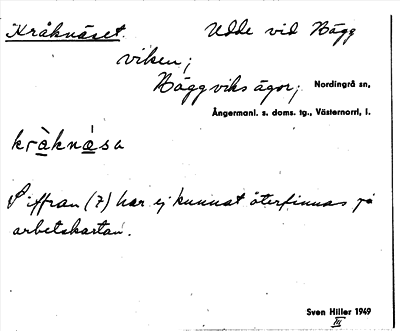 Kråknäset. Udde vid Häggviken;
Häggviks ägor; Nordingrå sn,
Ångermanl. s. doms. tg., Västernorrl. l.
kràknása
Siffran (7) har ej kunnat återfinnas på
arbetskartan.
Sven Hiller 1949
III